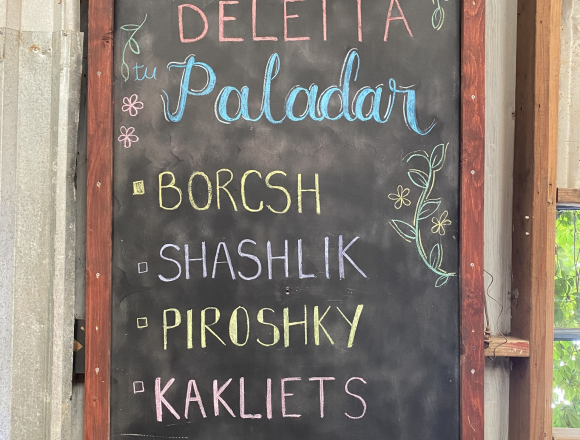 DELETTA
tu Paladar
BORCSH
SHASHLIK
PIROSHKY
KAKLIETS